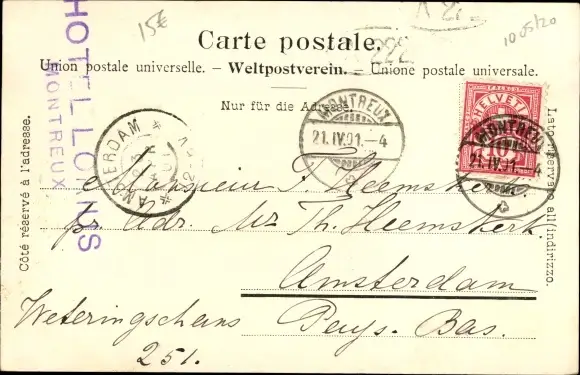 15€
10/05/20
Carte postale.
Union postale universelle. – Weltpostverein. – Unione postale universale.
Nur für die Adresse.
Côté réservé à l'adresse.
Lato riservato all'indirizzo.
HOTEL LORIUS
MONTREUX
AMSTERDAM
MONTREUX
21.IV.91.–4
HELVETIA
10
MONTREUX
21.IV.91.–4
Monsieur F. Heemskerk
pr. Adr. Mr Th. Heemskerk.
Amsterdam
Weteringschans Pays-Bas.
251.